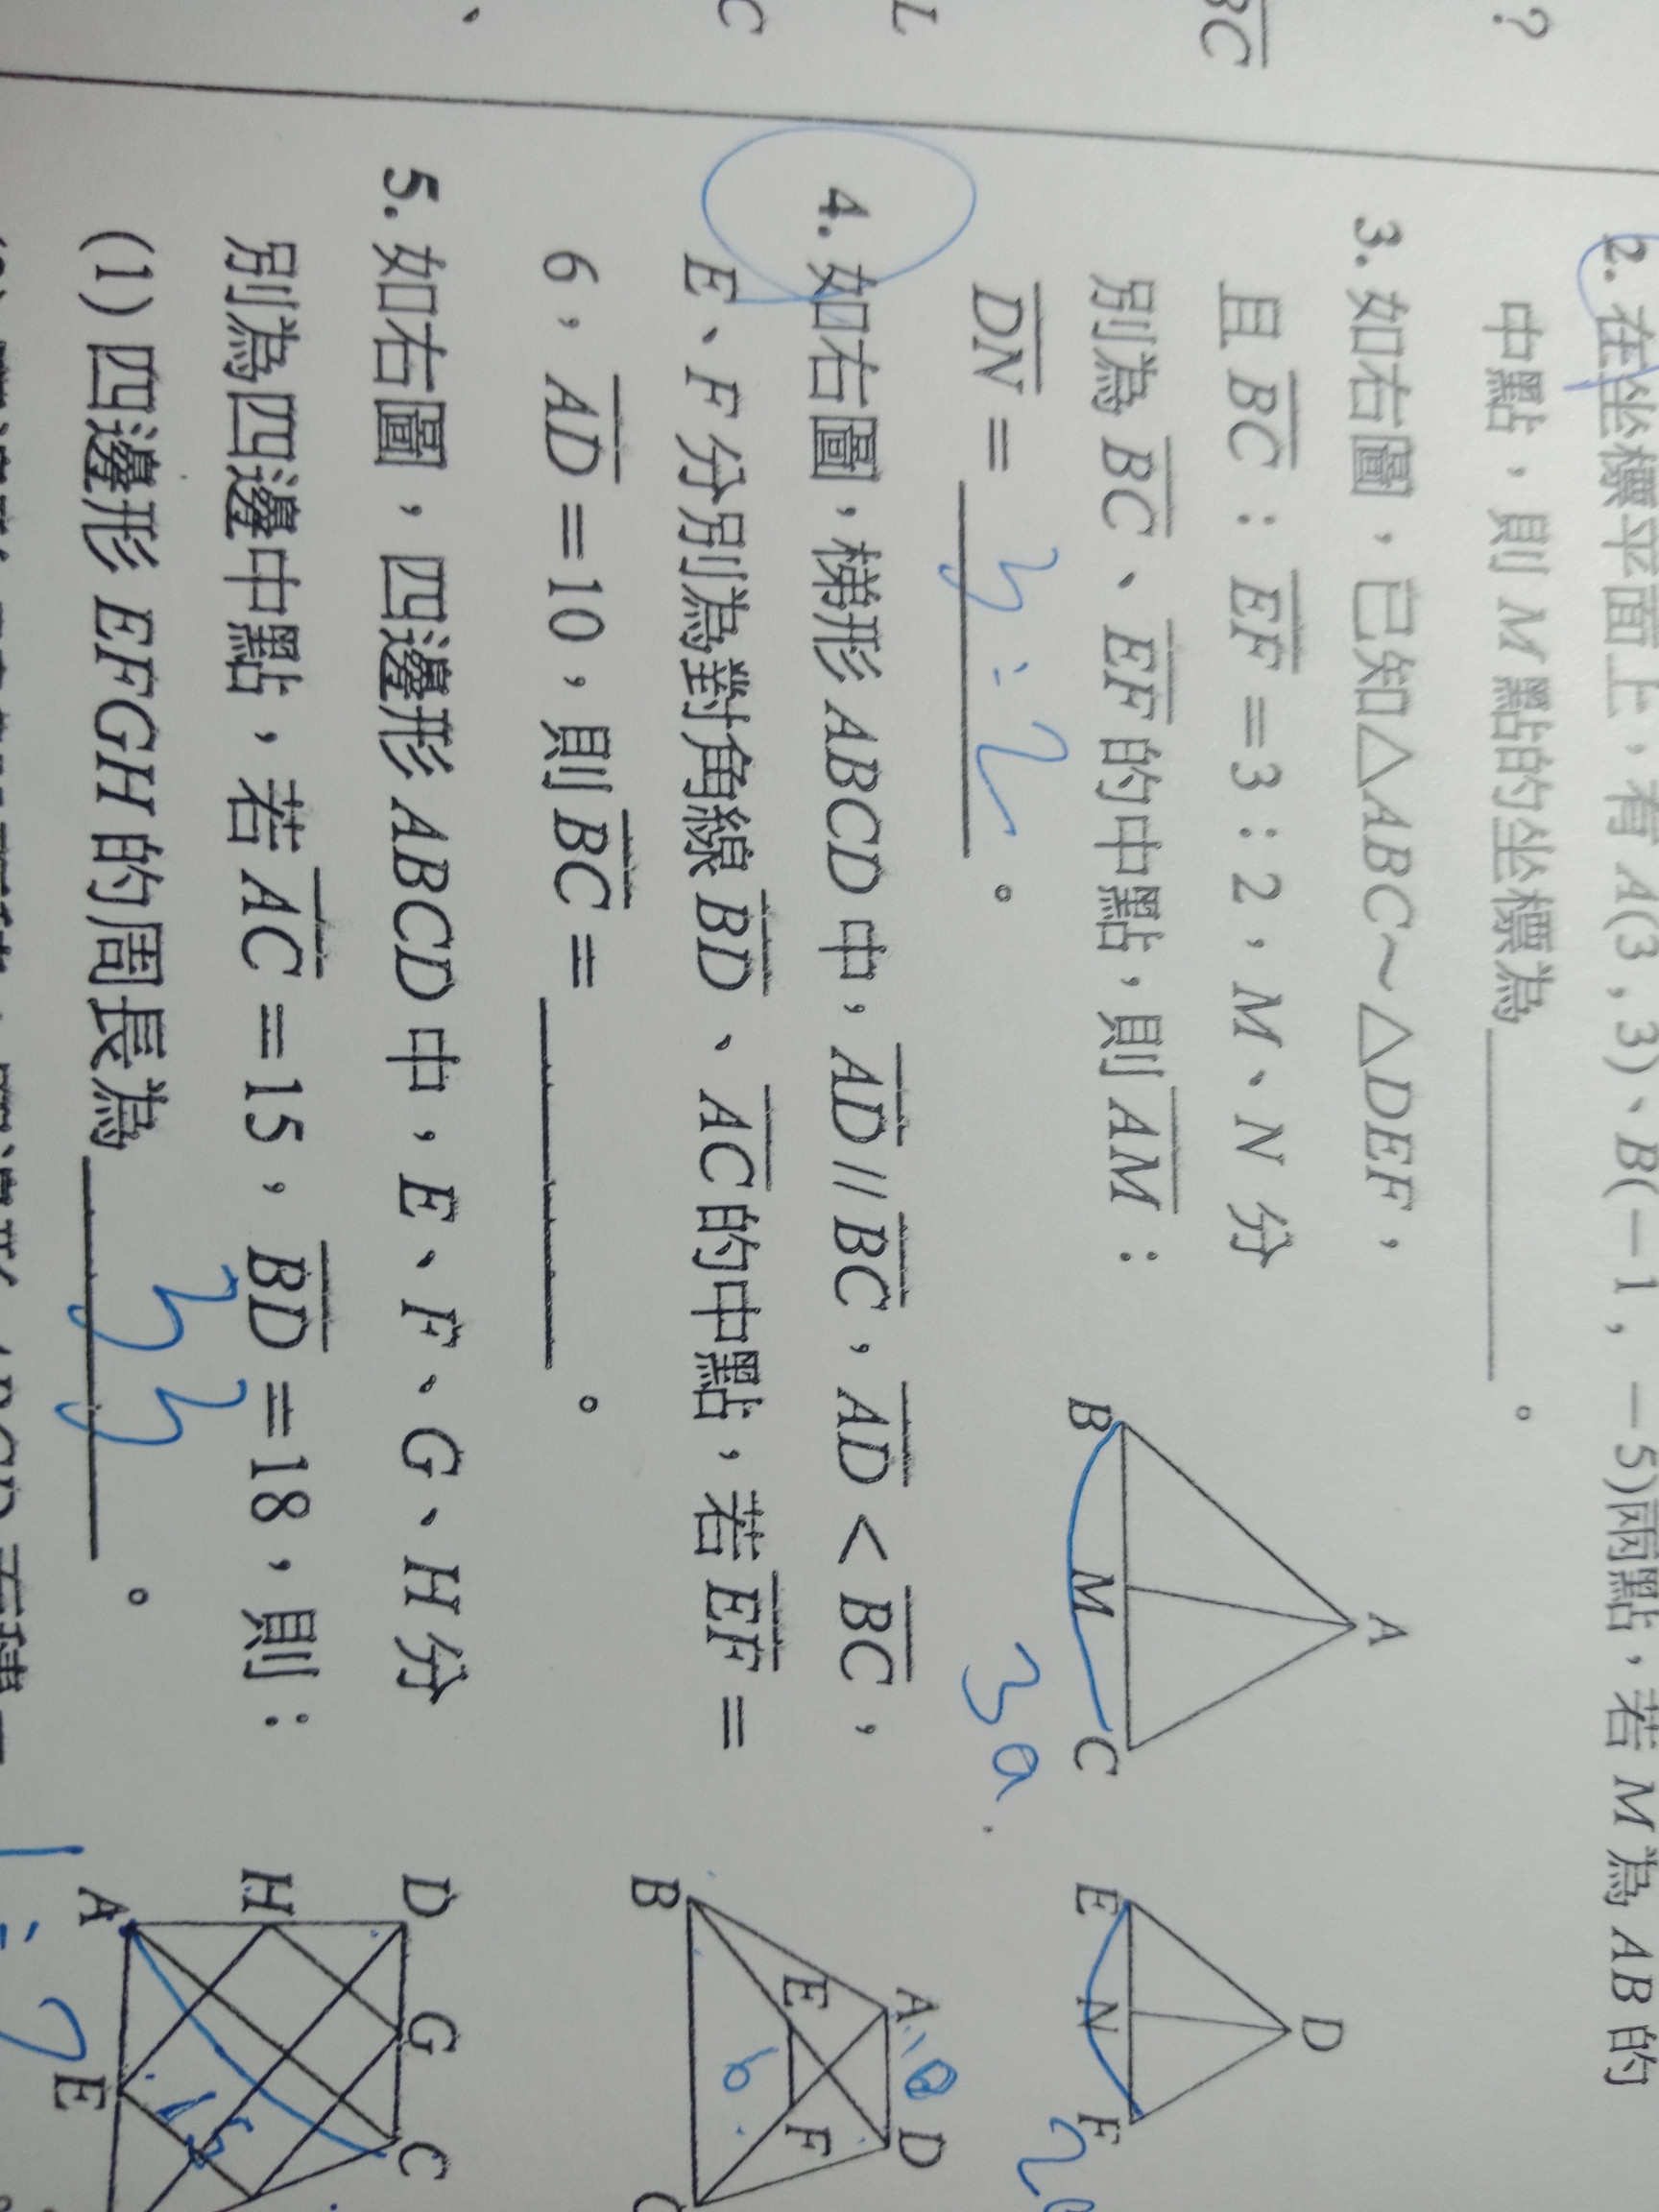 ?
BC
L
C
、
2. 在坐標平面上，有 A(3 , 3)、B(－1 , －5)兩點，若 M 為 AB 的
中點，則 M 點的坐標為________。
3. 如右圖，已知△ABC～△DEF，
且 BC：EF＝3：2，M、N 分
別為 BC、EF 的中點，則 AM：
DN＝ 3:2 。
A
B
M
C
3a
D
E
N
F
4. 如右圖，梯形 ABCD 中，AD // BC，AD < BC，
E、F 分別為對角線 BD、AC 的中點，若 EF＝
6，AD＝10，則 BC＝________。
A
D
E
F
6
B
5. 如右圖，四邊形 ABCD 中，E、F、G、H 分
別為四邊中點，若 AC＝15，BD＝18，則：
(1) 四邊形 EFGH 的周長為 33 。
D
G
C
H
15
A
E